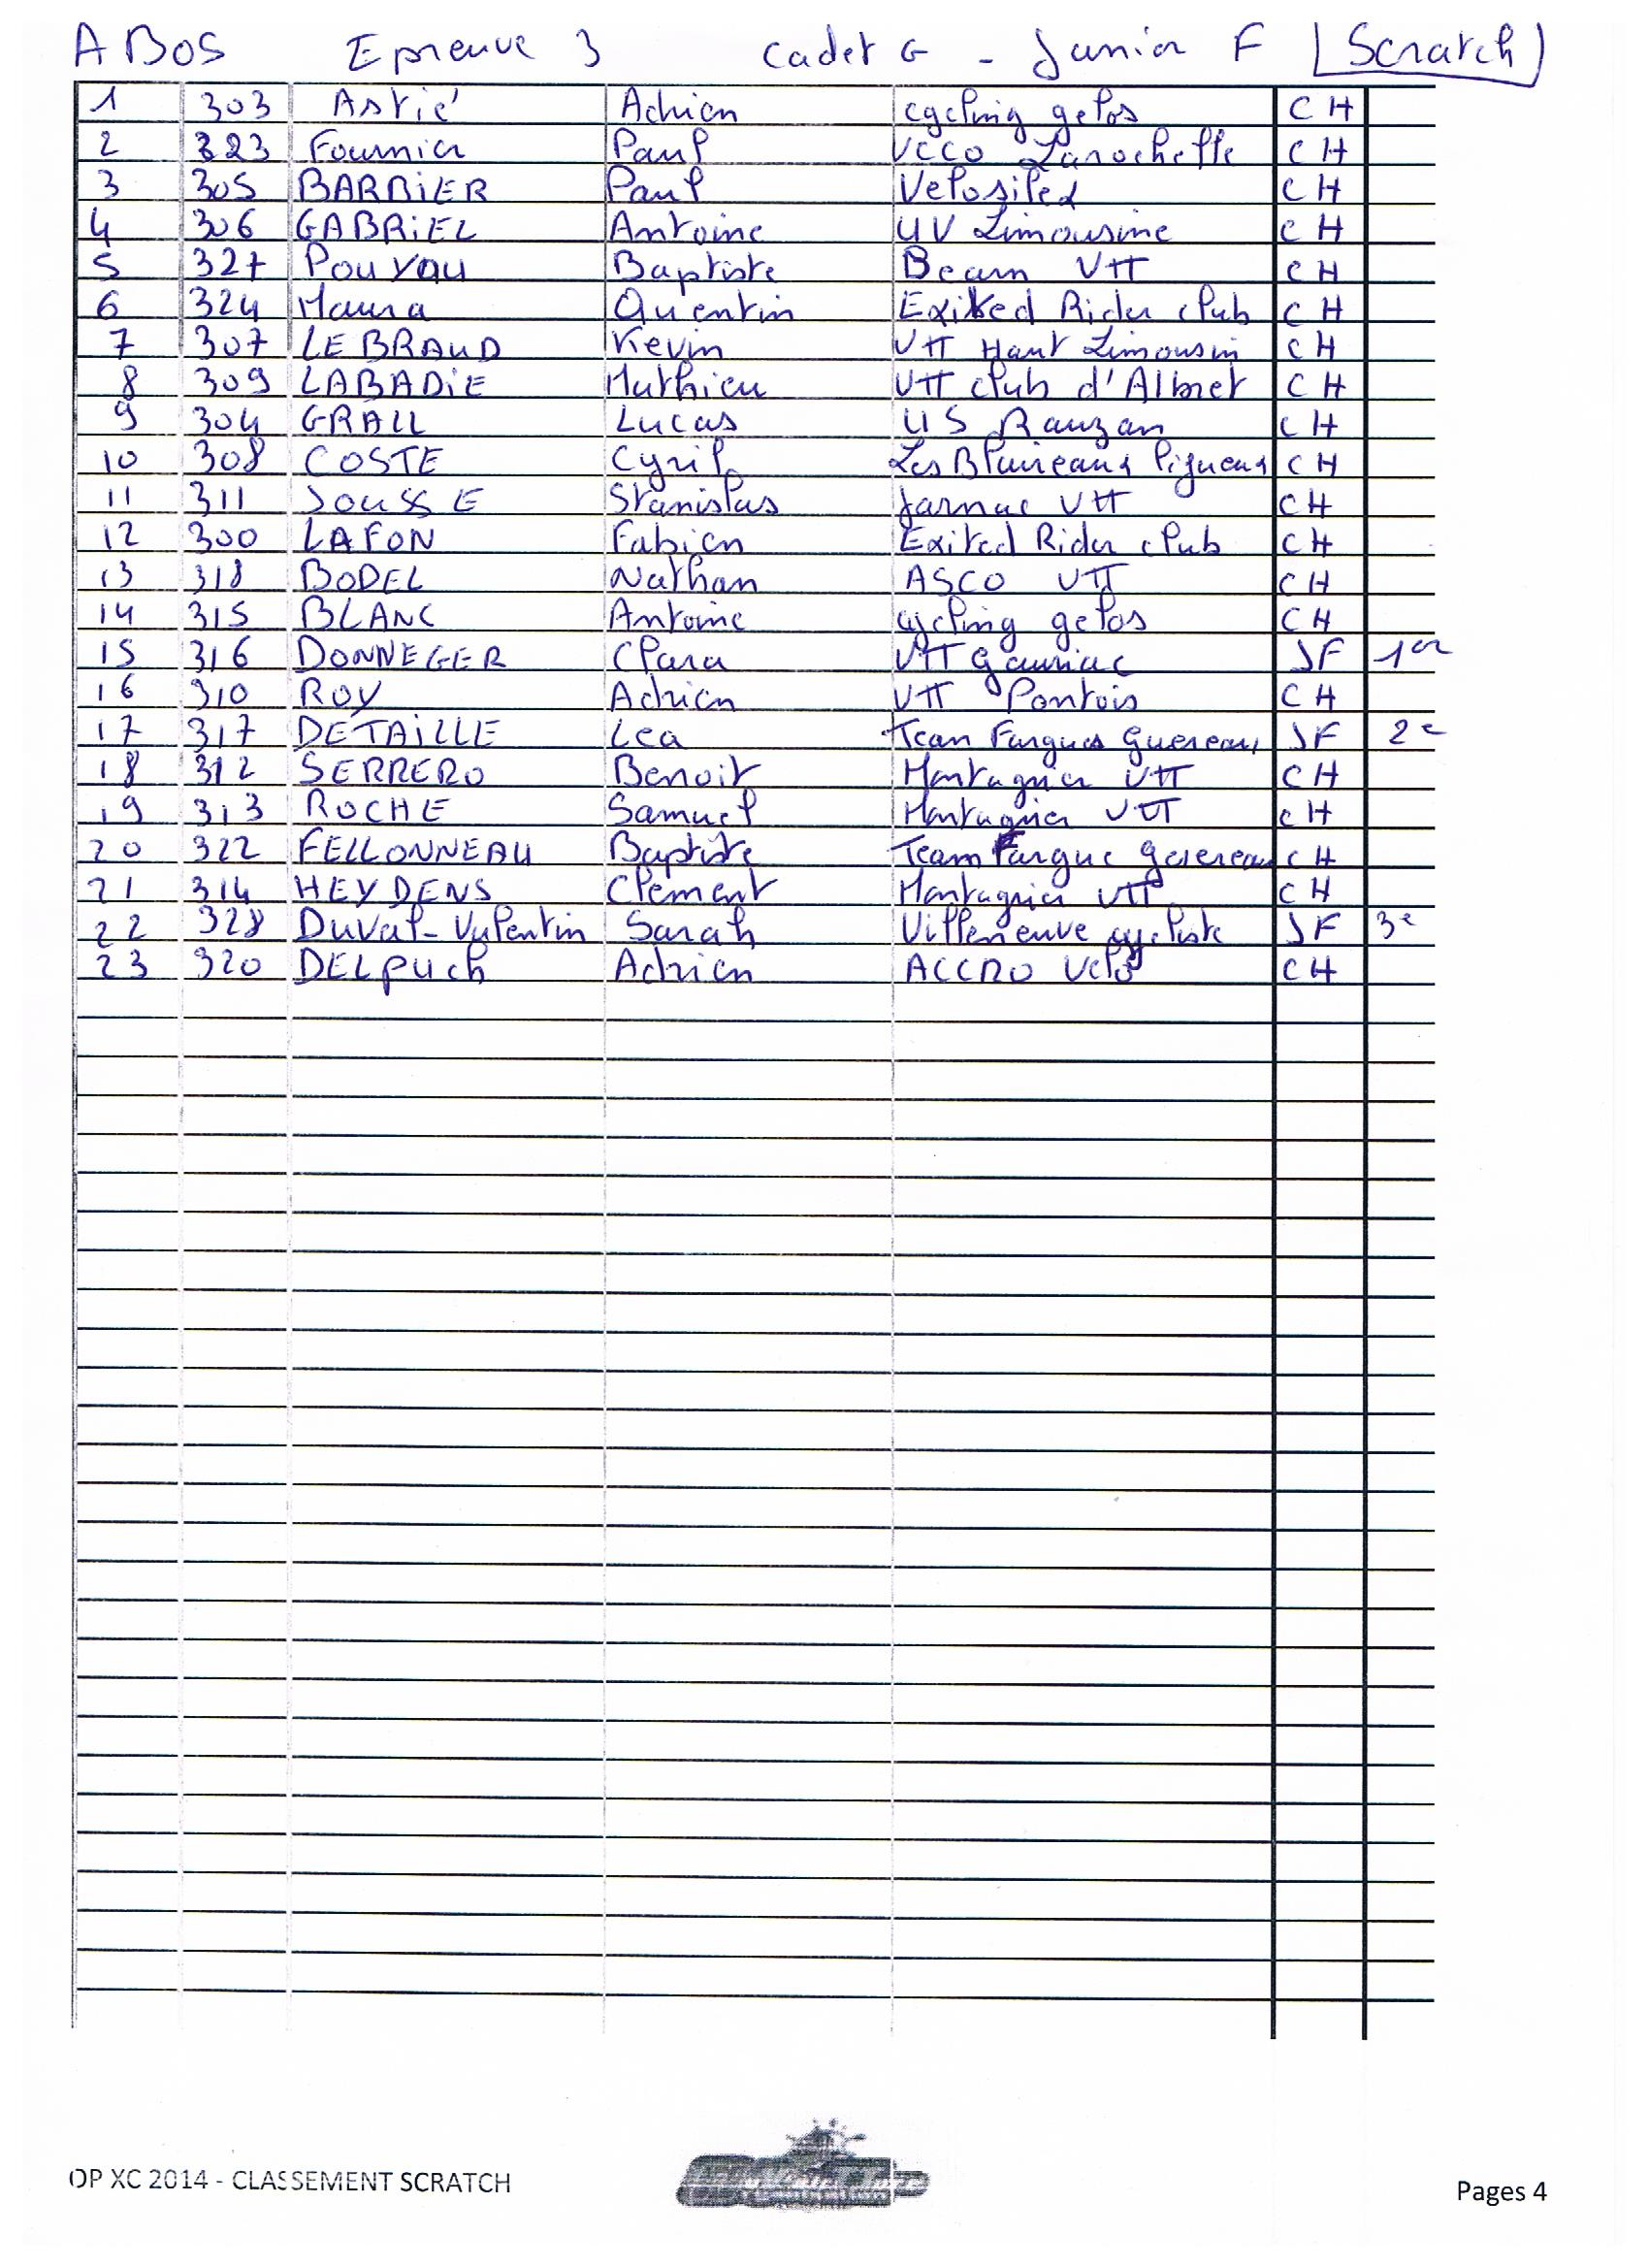 ABOS Epreuve 3 Cadet G - Junior F [Scratch]
1 303 Astié Adrien cycling gelos CH
2 323 Fournier Paul VCCO Larochelle CH
3 305 BARBiER Paul Velosiled CH
4 306 GABRiEL Antoine UV Limousine CH
5 327 Pouyau Baptiste Bearn VTT CH
6 324 Maura Quentin Exited Rider club CH
7 307 LEBRAUD Kevin VTT Haut Limousin CH
8 309 LABADiE Mathieu VTT club d'Albret CH
9 304 GRALL Lucas US Rauzan CH
10 308 COSTE Cyril Les Blaireaux CH
11 311 SOUSSE Stanislas Jarnac VTT CH
12 300 LAFON Fabien Exited Rider club CH
13 318 BODEL Nathan ASCO VTT CH
14 315 BLANC Antoine cycling gelos CH
15 316 DONNEGER Clara VTT Gauriac JF 1er
16 310 ROY Adrien VTT Pontois CH
17 317 DETAiLLE Lea Team Fargues JF 2e
18 312 SERRERO Benoit Montagrier VTT CH
19 313 ROCHE Samuel Montagrier VTT CH
20 322 FELLONNEAU Baptiste Team Fargue CH
21 314 HEYDENS Clement Montagrier VTT CH
22 328 Duval-Valentin Sarah Villeneuve cycliste JF 3e
23 320 DELpuch Adrien ACCRO Velo CH
OP XC 2014 - CLASSEMENT SCRATCH
Pages 4